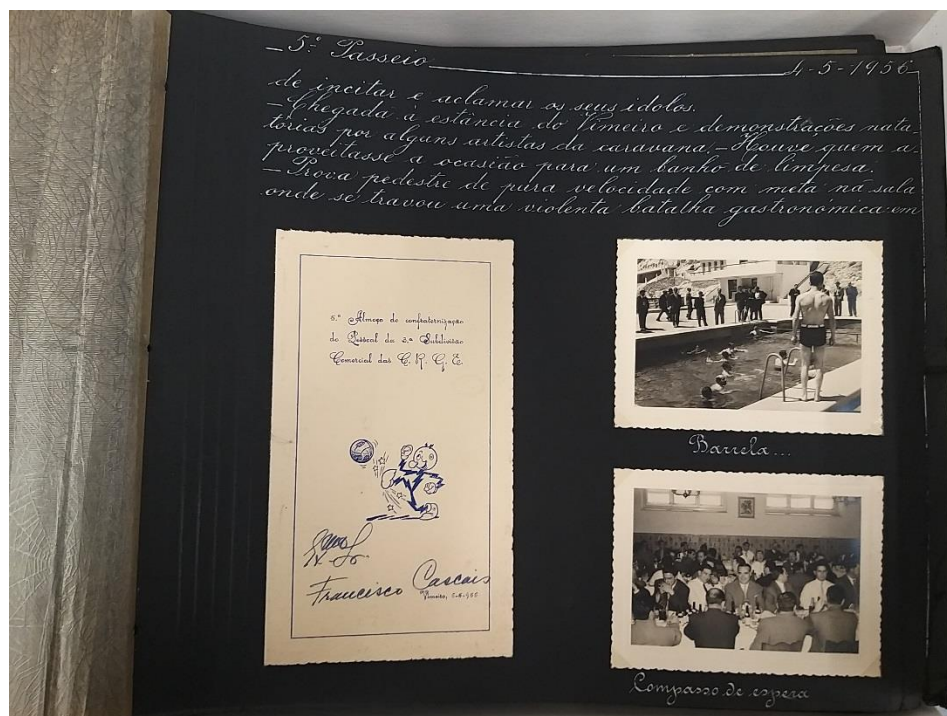 _5º Passeio_ 4-5-1956_
de incitar e aclamar os seus idolos.
_Chegada à estância do Vimeiro e demonstrações nata-
tórias por alguns artistas da caravana._Houve quem a-
proveitasse a ocasião para um banho de limpesa.
_Prova pedestre de pura velocidade com meta na sala
onde se travou uma violenta batalha gastronómica em
5.º Almoço de confraternização
do Pessoal da 3.ª Subdivisão
Comercial das C. R. G. E.
Francisco Cascais
Vimeiro,
Barrela...
Compasso de espera